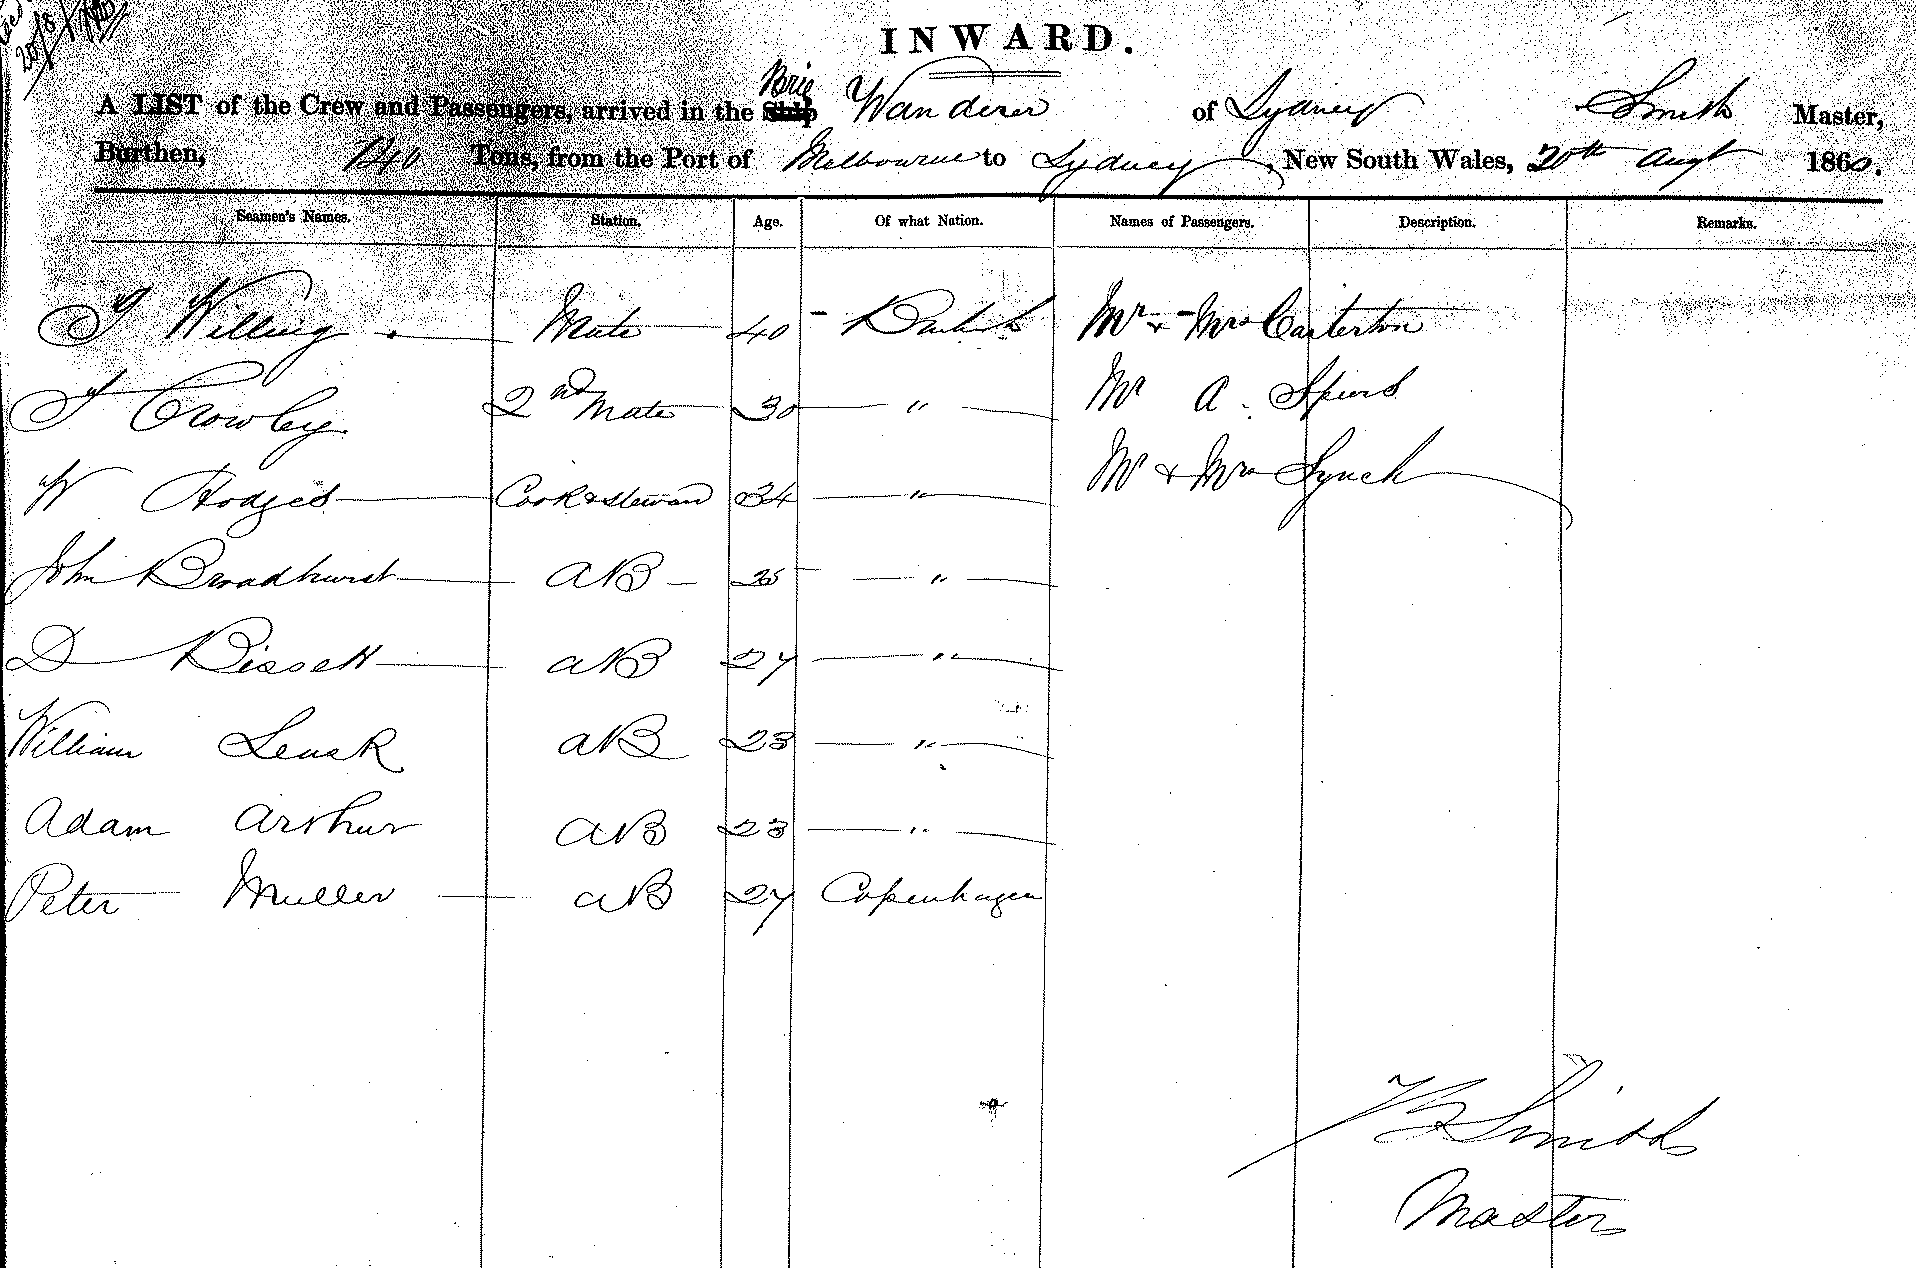 20/8/
INWARD.
A LIST of the Crew and Passengers, arrived in the Ship Brig Wanderer of Sydney Smith Master,
Burthen, 240 Tons, from the Port of Melbourne to Sydney, New South Wales, 20th Augt 1860.
Seamen's Names. Station. Age. Of what Nation. Names of Passengers. Description. Remarks.
Willing Mate 40 Mr & Mrs Casterton
Crowley 2nd Mate 30 " Mr A. Spiers
W Hodges Cook & steward 34 " Mr & Mrs Lynch
John Broadhurst AB 25 "
D Bissett AB 27 "
William Leask AB 23 "
Adam Arthur AB 23 "
Peter Muller AB 27 Copenhagen
Smith
Master